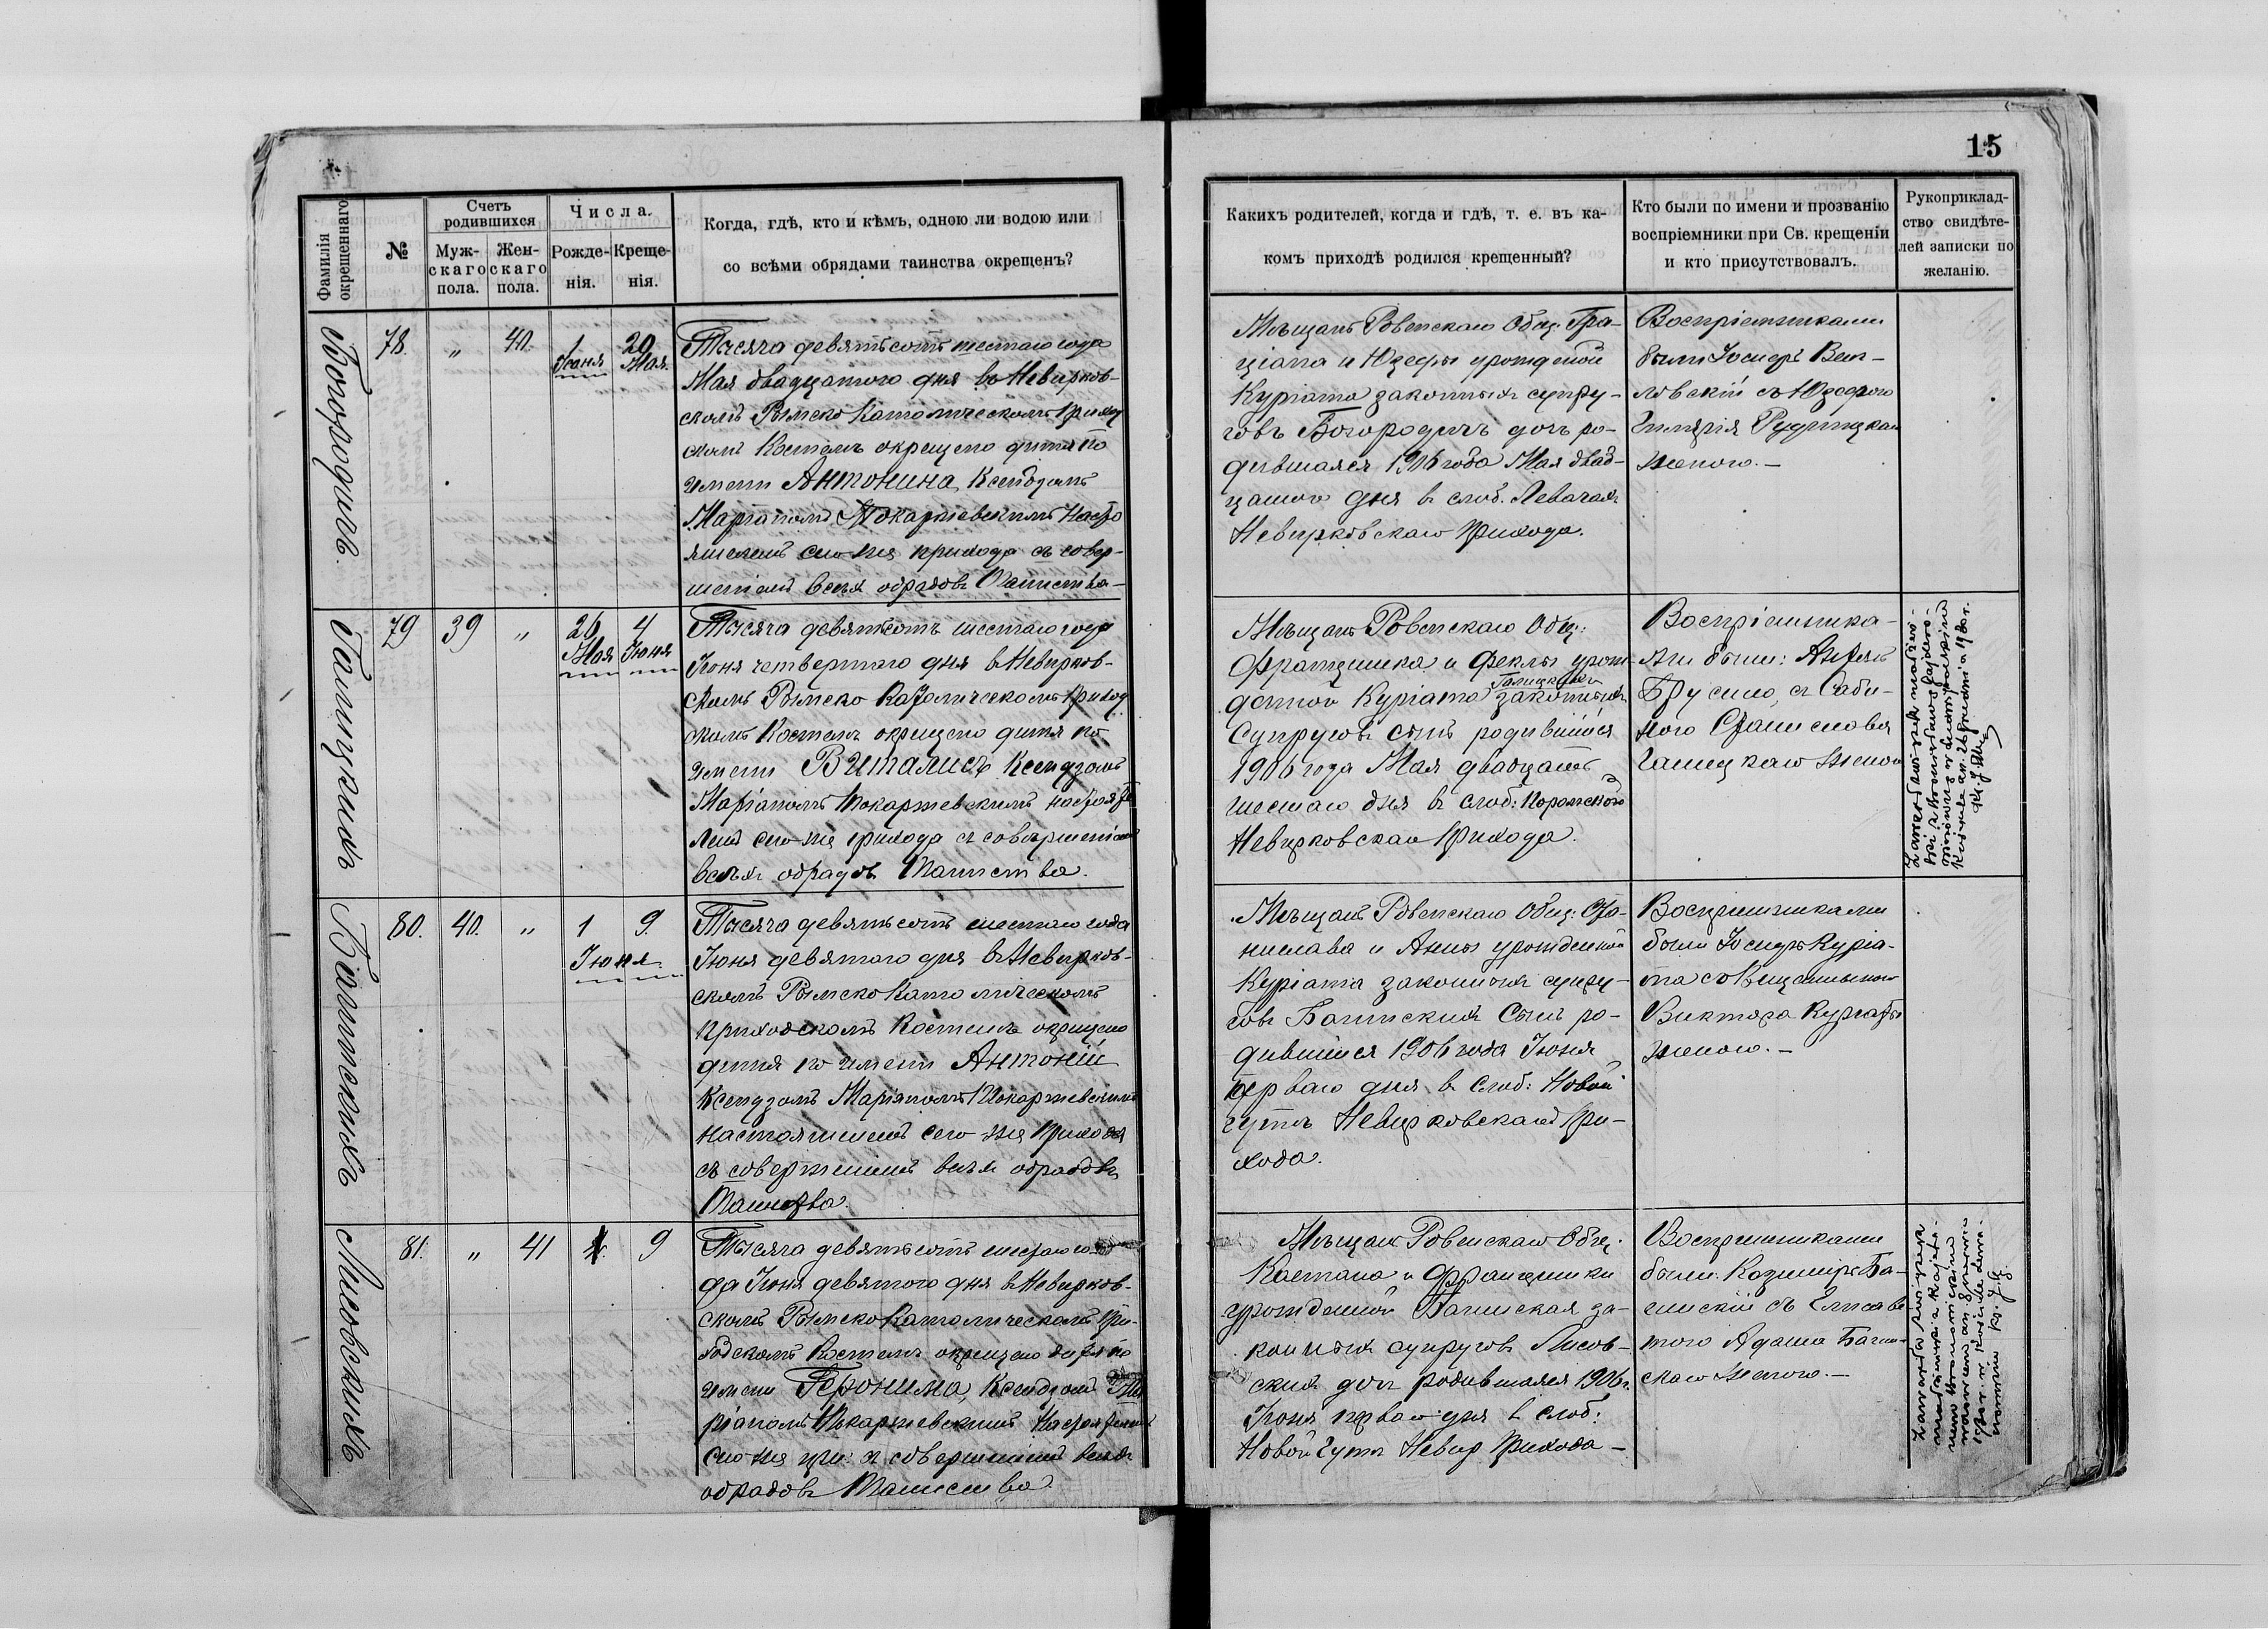 15
Фамилія окрещеннаго
№
Счетъ родившихся
Муж-
скаго
пола.
Жен-
скаго
пола.
Числа.
Рожде-
нія.
Креще-
нія.
Когда, гдѣ, кто и кѣмъ, одною ли водою или
со всѣми обрядами таинства окрещенъ?
Какихъ родителей, когда и гдѣ, т. е. въ ка-
комъ приходѣ родился крещенный?
Кто были по имени и прозванію
воспріемники при Св. крещеніи
и кто присутствовалъ.
Рукоприклад-
ство свидѣте-
лей записки по
желанію.
Богородичъ.
78.
"
40.
1
Іюня
20
Мая.
Тысяча девятьсотъ шестаго года
Мая двадцатого дня въ Невирков-
скомъ Римско Католическомъ Приход
скомъ Костелѣ окрещено дитя по
имени Антонина, Ксендзомъ
Маріаномъ Токаржевскимъ Насто
ятелемъ сего-же прихода съ совер-
шеніемъ всѣхъ обрядовъ Таинства-
Мѣщанъ Ровенскаго Общ: Гра-
ціана и Юзефы урожденой
Куріата законныхъ супру-
говъ Богородичъ дочь ро-
дившаяся 1906 года Мая двад-
цатого дня в слоб. Левачахъ
Невирковскаго Прихода.
Воспріемниками
были Іосифъ Вен-
ловскій съ Юзефою
женою.-
79
39
"
26
Мая
4
Іюня
Тысяча девятьсотъ шестаго года
Іюня четвертаго дня в Невирков-
скомъ Римско Католическомъ Приход
скомъ Костелѣ окрещено дитя по
имени Виталисъ Ксендзомъ
Маріаномъ Токаржевскимъ настояте
лемъ сего-же прихода съ совершеніемъ
всѣхъ обрядовъ Таинства.
Мѣщанъ Ровенскаго Общ:
Францишка и Феклы урож
денной Куріата законныхъ
Супруговъ сынъ родившійся
1906 года Мая двадцать
шестаго дня в слоб:
Невирковскаго Прихода.
Воспріемника-
ми были:
съ Саби-
ною Станислава
женою
80.
40.
"
1
9.
Іюня.
Тысяча девятьсотъ шестаго года
Іюня девятого дня в Невирков-
скомъ Римско Католическомъ
приходскомъ Костелѣ окрещено
дитя по имени Антоній
Ксендзомъ Маріаномъ Токаржевскимъ
настоятелемъ сего-же Прихода
съ совершеніемъ всѣхъ обрядовъ
Таинства.
Мѣщанъ Ровенскаго Общ: Ста-
нислава и Анны урожденной
Куріата законныхъ супру-
говъ Багинскихъ Сынъ ро-
дившійся 1906 года Іюня
перваго дня в Слоб: Новой
гутѣ Невирковскаго При-
хода.
Воспріемниками
были Іосифъ Куріа-
та
Виктора Куріаты
женою.-
Лисовскихъ
81.
"
41
9
Тысяча девятьсотъ шестаго го-
да Іюня девятого дня в Невирков-
скомъ Римско Католическомъ При-
ходскомъ Костелѣ окрещено дитя по
имени Геронима, Ксендзомъ Ма
ріаномъ Токаржевскимъ Настоятелемъ
сего-же при: съ совершеніемъ всѣхъ
обрядовъ Таинства.
Мѣщанъ Ровенскаго Общ:
Каетана и Францишки
урожденной Багинская за-
конныхъ супруговъ Лисов-
скихъ дочь родившаяся 1906 г.
Іюня перваго дня в слоб:
Новой Гутѣ Невир Прихода-
Воспріемниками
были: Казимиръ Ба-
гинскій съ Елисаве
тою Адама Багин-
скаго женою.-